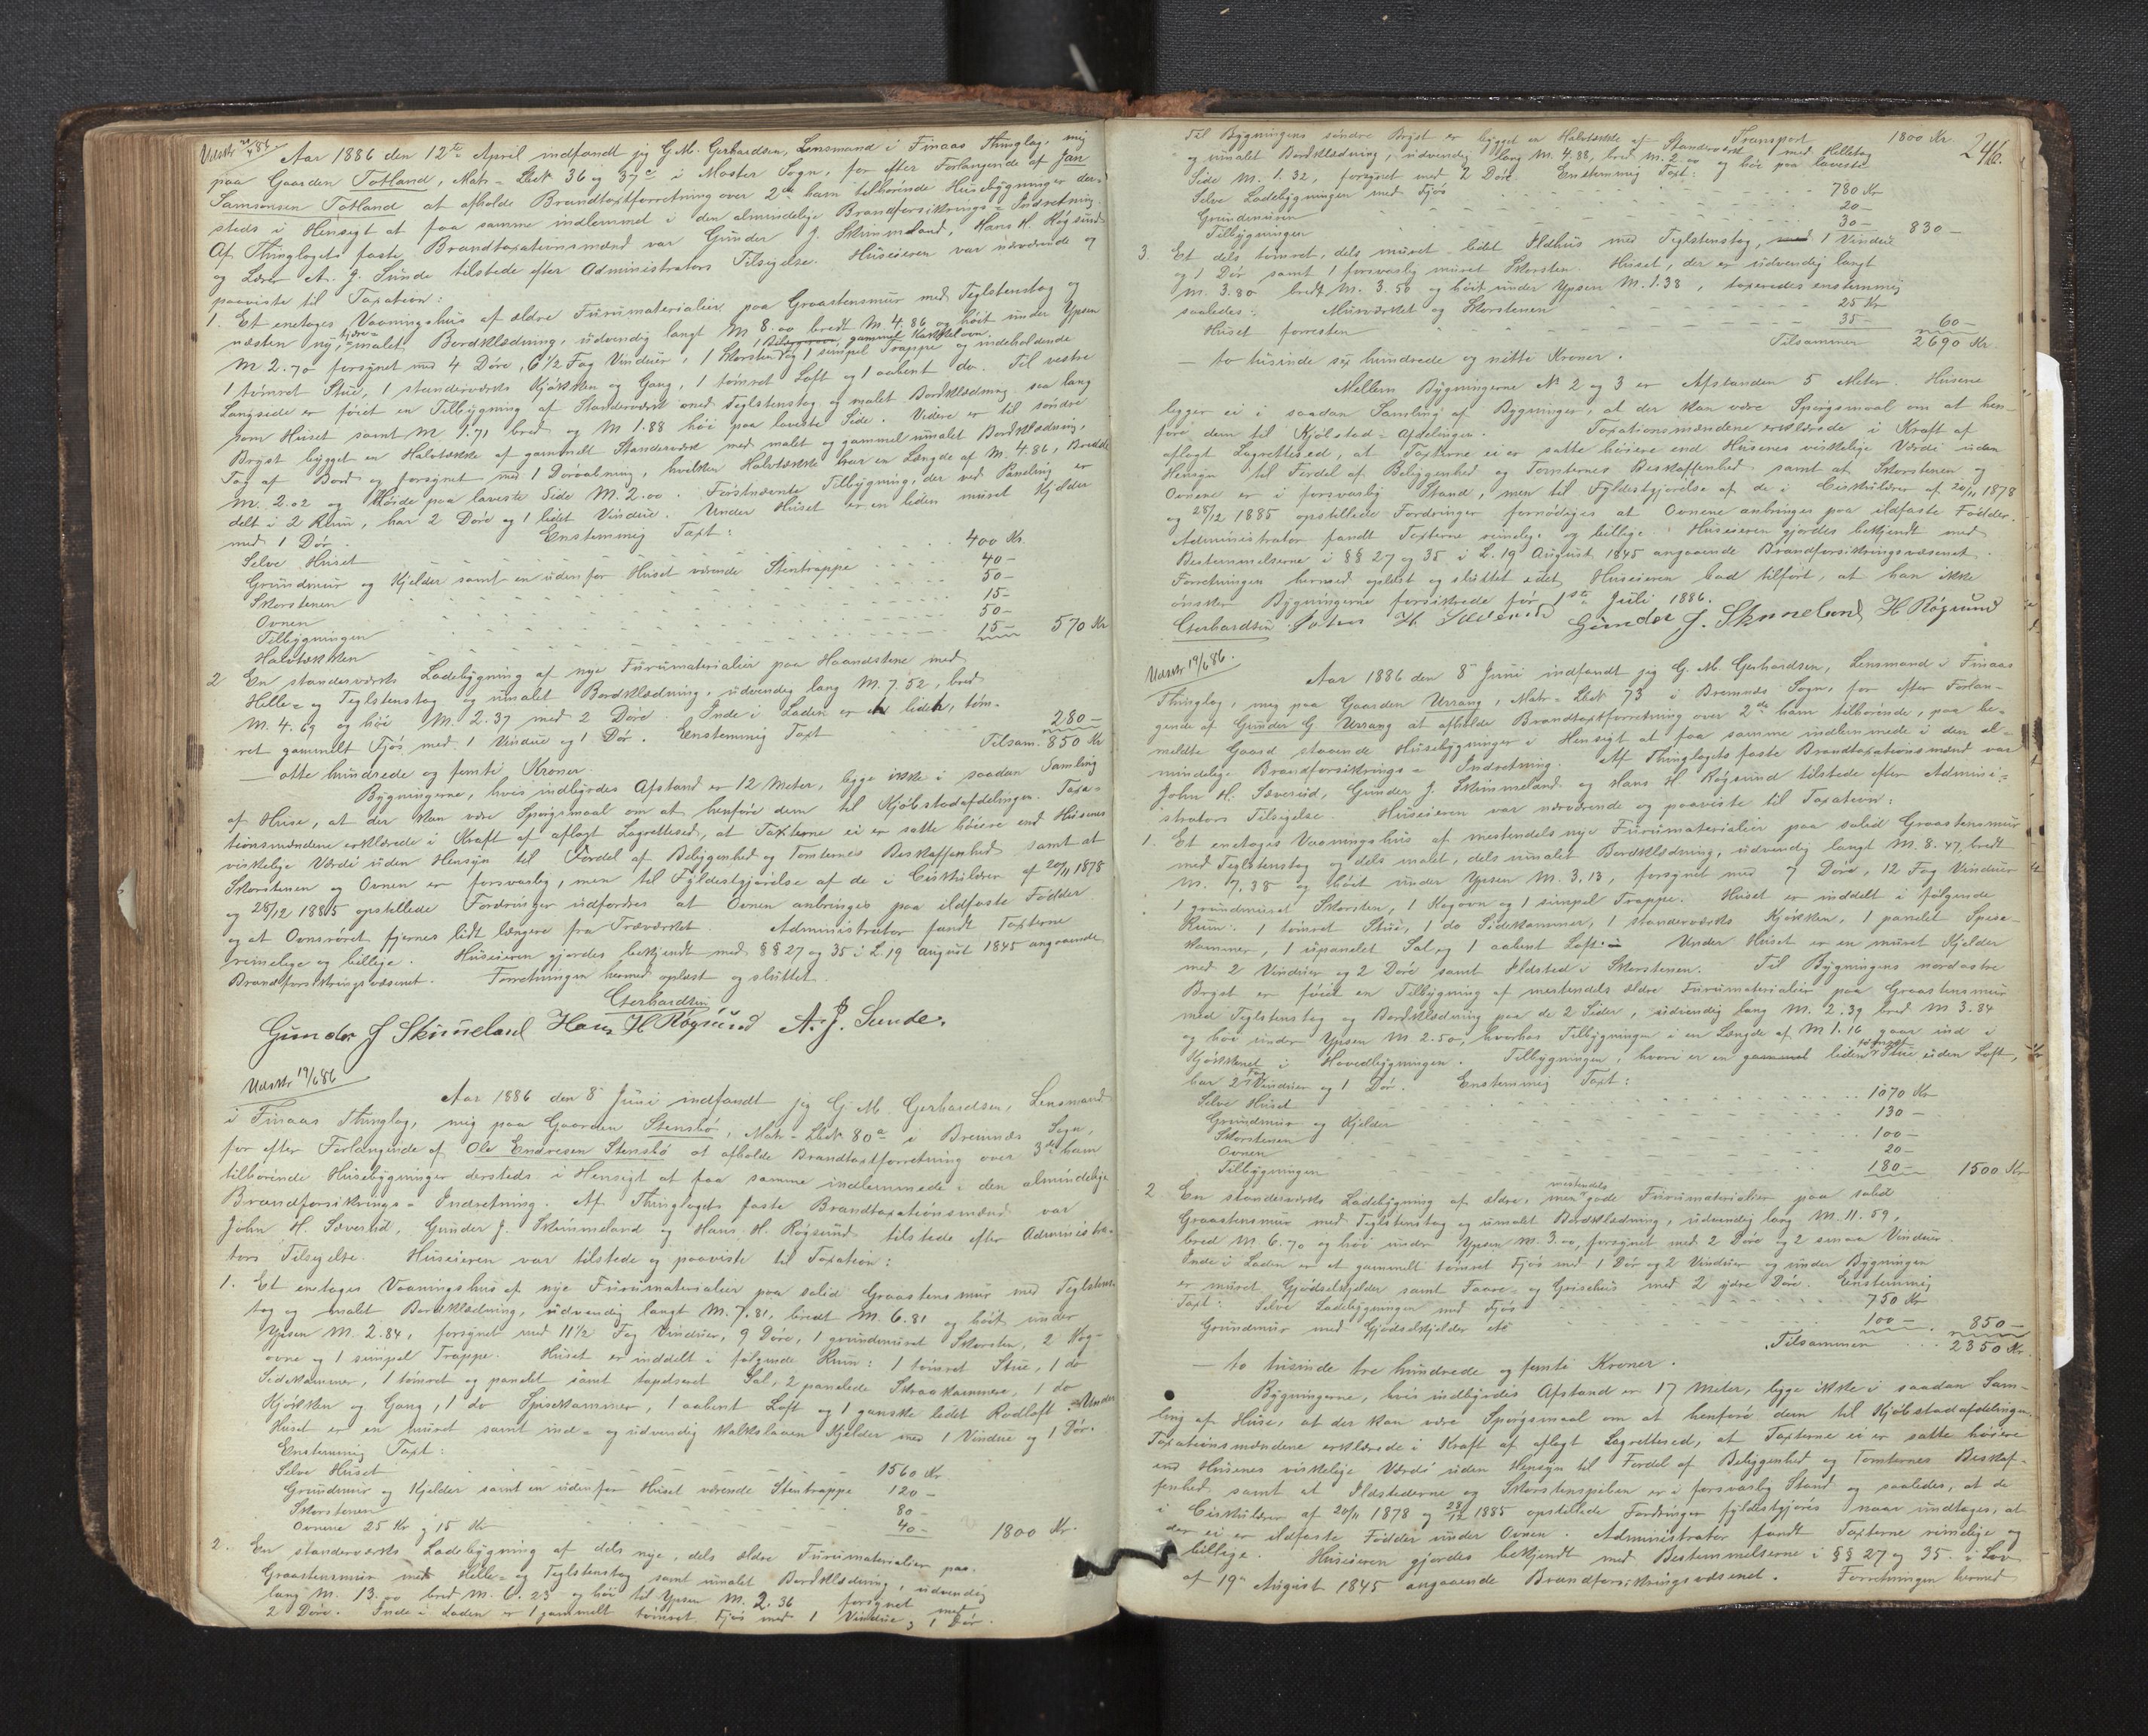 Udskr 20/4 86
Aar 1886 den 12te April indfandt jeg G. M. Gerhardsen, Lensmand i Finaas Thinglag, mig
paa Gaarden Totland, Matr-Lbek 36 og 37c i Moster Sogn, for efter Forlangende af Jan
Samsonsen Totland at afholde Brandtaxtforretning over 2de ham tilhørende Husebygninger der-
steds i Hensigt at faa samme indlemmet i den almindelige Brandforsikrings-Indretning.
Af Thinglagets faste Brandtaxationsmænd var Gunder J. Skimmeland, Hans H. Røgsund
og Lærer A. J. Sunde tilstede efter Administrators Tilsigelse. Huseieren var nærværende og
paaviste til Taxation:
1. Et enetages Vaaningshus af ældre Furumaterialier paa Graastensmur med Teglstenstag og
næsten ny, malet Bordklædning, udvendig langt M 8.00 bredt M. 4.86 og høit under Ypsen
M 2.70 forsynet med 4 Døre, 6 1/2 Fag Vinduer, 1 Skorsten og 1 simpel Trappe og indeholdende
1 tømret Stue, 1 standerværks Kjøkken og Gang, 1 tømret Loft og 1 aabent do. Til vestre
Langside er føiet en Tilbygning af Standerværk med Teglstenstag og malet Bordklædning saa lang
som Huset samt M 1.71 bred og M 1.88 høi paa laveste Side. Videre er til søndre
Bryst bygget en Halvtække af gammelt Standerværk med malet og gammel umalet Bordklædning,
Tag af Bord og forsynet med 1 Døraabning, hvilken Halvtække har en Længde af M. 4.86, Bredde
M. 2.02 og Høide paa laveste Side M. 2.00. Førstnævnte Tilbygning, der ved Paneling er
delt i 2 Rum, har 2 Døre og 1 lidet Vindue. Under Huset er en liden muret Kjelder
med 1 Dør. Enstemmig Taxt:
Selve Huset 400 Kr.
Grundmur og Kjelder samt en udenfor Huset værende Stentrappe 40 -
Skorstenen 50 -
Ovnen 15 -
Tilbygningen 50 -
Halvtækken 15 - 570 Kr
2 En standerværks Ladebygning af nye Furumaterialier paa Haandstene med
Helle- og Teglstenstag og umalet Bordklædning, udvendig lang M. 7.52, bred
M. 4.69 og høi M. 2.37 med 2 Døre. Inde i Laden er et lidet, tøm-
ret gammelt Fjøs med 1 Vindue og 1 Dør. Enstemmig Taxt 280 -
Tilsam. 850 Kr
- otte hundrede og femti Kroner.
Bygningerne, hvis indbyrdes Afstand er 12 Meter, ligge ikke i saadan Samling
af Huse, at der kan være Spørgsmaal om at henføre dem til Kjøbstadafdelingen. Taxa-
tionsmændene erklærede i Kraft af aflagt Lagrettesed, at Taxterne ei er satte høiere end Husenes
virkelige Værdi uden Hensyn til Fordel af Beliggenhed og Tomternes Beskaffenhed samt at
Skorstenen og Ovnen er forsvarlig, men til Fyldestgjørelse af de i Cirkulærer af 20/11 1878
og 28/12 1885 opstillede Fordringer udfordres at Ovnen anbringes paa ildfaste Fødder
og at Ovnsrøret fjernes lidt længere fra Træværket. Administrator fandt Taxterne
rimelige og billige. Huseieren gjordes bekjendt med §§ 27 og 35 i L. 19 August 1845 angaaende
Brandforsikringsvæsenet. Forretningen hermed oplæst og sluttet.
Gerhardsen
Gunder J Skimeland Hans H Røgsund A. J. Sunde.
Udskr 19/6 86
Aar 1886 den 8 Juni indfandt jeg G. M. Gerhardsen, Lensmand
i Finaas Thinglag, mig paa Gaarden Stensbø, Matr-Lbek 80a i Bremnæs Sogn,
for efter Forlangende af Ole Endresen Stensbø at afholde Brandtaxtforretning over 3de ham
tilhørende Husebygninger dersteds i Hensigt at faa samme indlemmede i den almindelige
Brandforsikrings-Indretning. Af Thinglagets faste Brandtaxationsmænd var
John H. Sæverud, Gunder J. Skimmeland og Hans H. Røgsund tilstede efter Administra-
tors Tilsigelse. Huseieren var tilstede og paaviste til Taxation:
1. Et enetages Vaaningshus af nye Furumaterialier paa solid Graastensmur med Teglstens-
tag og malet Bordklædning, udvendig langt M. 7.81, bredt M. 6.81 og høit under
Ypsen M. 2.84, forsynet med 11 1/2 Fag Vinduer, 9 Døre, 1 grundmuret Skorsten, 2 Kog-
ovne og 1 simpel Trappe. Huset er inddelt i følgende Rum: 1 tømret Stue, 1 do
Sidekammer, 1 tømret og panelet samt tapetseret Sal, 2 panelede Skraakammere, 1 do
Kjøkken og Gang, 1 do Spisekammer, 1 aabent Loft og 1 ganske lidet Rodloft. Under
Huset er en muret samt ind- og udvendig kalkslaaen Kjelder med 1 Vindue og 1 Dør.
Enstemmig Taxt:
Selve Huset 1560 Kr.
Grundmur og Kjelder samt en udenfor Huset værende Stentrappe 120 -
Skorstenen 80 -
Ovnene 25 Kr og 15 Kr 40 - 1800 Kr.
2. En standerværks Ladebygning af dels nye, dels ældre Furumaterialier paa
Graastensmur med Helle- og Teglstenstag samt umalet Bordklædning, udvendig
lang M. 13.00 bred M. 6.23 og høi til Ypsen M. 2.36 forsynet med
2 Døre. Inde i Laden er 1 gammelt tømret Fjøs med 1 Vindue og 1 Dør.
246.
Transport 1800 Kr
Til Bygningens søndre Bryst er bygget en Halvtække af Standerværk med Helletag
og umalet Bordklædning, udvendig lang M. 4.88, bred M. 2.00 og høi paa laveste
Side M. 1.32, forsynet med 2 Døre. Enstemmig Taxt:
Selve Ladebygningen med Fjøs 780 Kr
Grundmuren 20 -
Tilbygningen 30 - 830 -
3. Et dels tømret, dels muret lidet Ildhus med Teglstenstag, 1 Vindue
og 1 Dør samt 1 forsvarlig muret Skorsten. Huset, der er udvendig langt
M. 3.80 bredt M. 3.50 og høit under Ypsen M. 1.38, taxeredes enstemmig
saaledes: Murværket og Skorstenen 25 Kr
Huset forresten 35 - 60 -
Tilsammen 2690 Kr
- to tusinde sex hundrede og nitti Kroner.
Mellem Bygningerne No 2 og 3 er Afstanden 5 Meter. Husene
ligger ei i saadan Samling af Bygninger, at der kan være Spørgsmaal om at hen-
føre dem til Kjøbstad-Afdelingen. Taxationsmændene erklærede i Kraft af
aflagt Lagrettesed, at Taxterne ei er satte høiere end Husenes virkelige Værdi uden
Hensyn til Fordel af Beliggenhed og Tomternes Beskaffenhed samt at Skorstenen og
Ovnene er i forsvarlig Stand, men til Fyldestgjørelse af de i Cirkulærer af 20/11 1878
og 28/12 1885 opstillede Fordringer fornødiges at Ovnene anbringes paa ildfaste Fødder.
Administrator fandt Taxterne rimelige og billige. Huseieren gjordes bekjendt med
Bestemmelserne i §§ 27 og 35 i L. 19 August 1845 angaaende Brandforsikringsvæsenet.
Forretningen hermed oplæst og sluttet idet Huseieren bad tilført, at han ikke
ønsker Bygningerne forsikrede før 1ste Juli 1886.
Gerhardsen H. Gunder J. Skimeland H Røgsund
Udskr 19/6 86.
Aar 1886 den 8 Juni indfandt jeg G. M. Gerhardsen, Lensmand i Finaas
Thinglag, mig paa Gaarden Urrang, Matr-Lbek 73 i Bremnæs Sogn, for efter Forlan-
gende af Gunder G Urrang at afholde Brandtaxtforretning over 2de ham tilhørende, paa be-
meldte Gaard staaende Husebygninger i Hensigt at faa samme indlemmede i den al-
mindelige Brandforsikrings-Indretning. Af Thinglagets faste Brandtaxationsmænd var
John H. Sæverud, Gunder J. Skimmeland og Hans H Røgsund tilstede efter Admini-
strators Tilsigelse. Huseieren var nærværende og paaviste til Taxation:
1. Et enetages Vaaningshus af mestendels nye Furumaterialier paa solid Graastensmur
med Teglstenstag og dels malet, dels umalet Bordklædning, udvendig langt M. 8.47, bredt
M. 7.38 og høit under Ypsen M. 3.13, forsynet med 7 Døre, 12 Fag Vinduer
1 grundmuret Skorsten, 1 Kogovn og 1 simpel Trappe. Huset er inddelt i følgende
Rum: 1 tømret Stue, 1 do Sidekammer, 1 standerværks Kjøkken, 1 panelet Spise-
kammer, 1 upanelet Sal og 1 aabent Loft. Under Huset er en muret Kjelder
med 2 Vinduer og 2 Døre samt Ildsted i Skorstenen. Til Bygningens nordostre
Bryst er føiet en Tilbygning af mestendels ældre Furumaterialier paa Graastensmur
med Teglstenstag og Bordklædning paa de 2 Sider, udvendig lang M. 2.39 bred M 3.84
og høi under Ypsen M 2.50, hvorhos Tilbygningen i en Længde af M 1.16 gaar ind i
Kjøkkenet i Hovedbygningen. Tilbygningen, hvori er en gammel liden tømret Stue uden Loft,
har 2 Fag Vinduer og 1 Dør. Enstemmig Taxt:
Selve Huset 1070 Kr
Grundmur og Kjelder 130 -
Skorstenen 100 -
Ovnen 20 -
Tilbygningen 180 - 1500 Kr
2 En standerværks Ladebygning af ældre, men mestendels gode Furumaterialier paa solid
Graastensmur med Teglstenstag og umalet Bordklædning, udvendig lang M. 11.59,
bred M. 6.70 og høi under Ypsen M. 3.00, forsynet med 2 Døre og 2 smaa Vinduer.
Inde i Laden er et gammelt tømret Fjøs med 1 Dør og 2 Vinduer og under Bygningen
er muret Gjødselkjelder samt Faare- og Grisehus med 2 ydre Døre. Enstemmig
Taxt: Selve Ladebygningen med Fjøs 750 Kr
Grundmur med Gjødselkjelder etc 100 - 850 -
Tilsammen 2350 Kr.
- to tusinde tre hundrede og femti Kroner.
Bygningerne, hvis indbyrdes Afstand er 17 Meter, ligge ikke i saadan Sam-
ling af Huse, at der kan være Spørgsmaal om at henføre dem til Kjøbstadafdelingen.
Taxationsmændene erklærede i Kraft af aflagt Lagrettesed, at Taxterne ei er satte høiere
end Husenes virkelige Værdi uden Hensyn til Fordel af Beliggenhed og Tomternes Beskaf-
fenhed samt at Ildstederne og Skorstenspiben er i forsvarlig Stand og saaledes, at de
i Cirkulærer af 20/11 1878 og 28/12 1885 opstillede Fordringer fyldestgjøres naar undtages, at
der ei er ildfaste Fødder under Ovnen. Administrator fandt Taxterne rimelige og
billige. Huseieren gjordes bekjendt med Bestemmelserne i §§ 27 og 35 i Lov
af 19 August 1845 angaaende Brandforsikringsvæsenet. Forretningen hermed